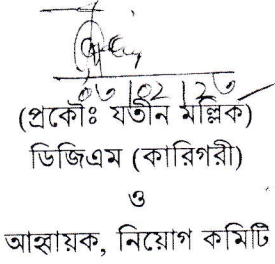 (প্রকৌঃ যতীন মল্লিক)
ডিজিএম (কারিগরী)
ও
আহ্বায়ক, নিয়োগ কমিটি